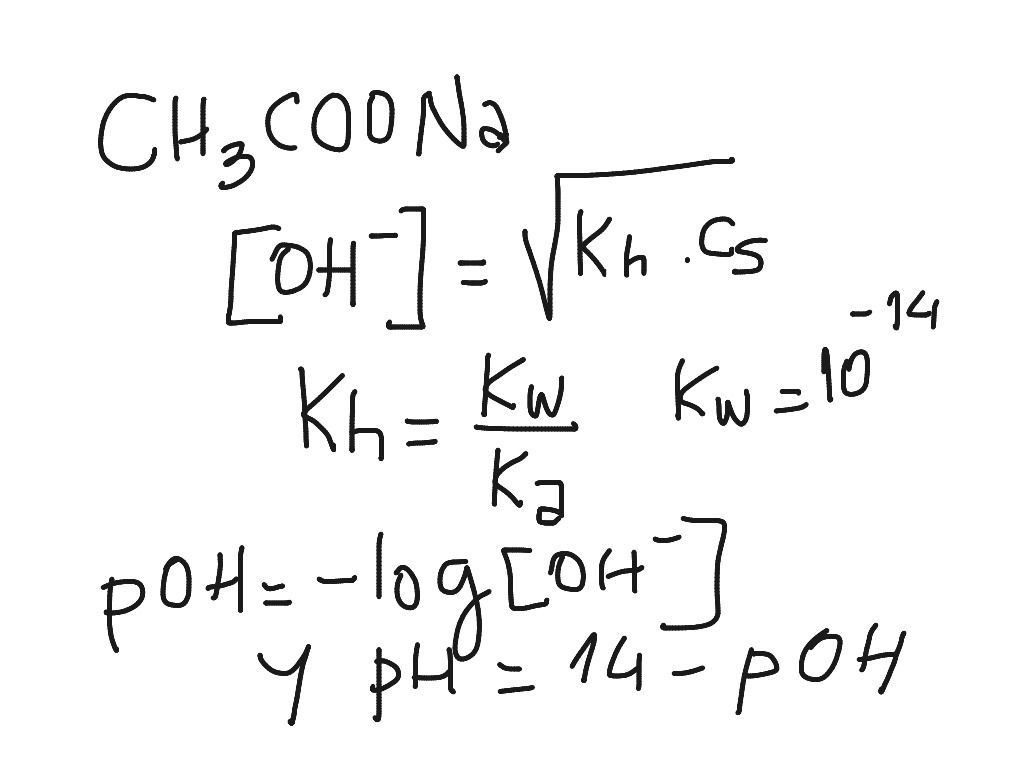 CH₃COONa
[OH⁻] = √(Kh · Cs)
Kh = Kw/Ka   Kw = 10⁻¹⁴
pOH = -log [OH⁻]
y pH = 14 - pOH